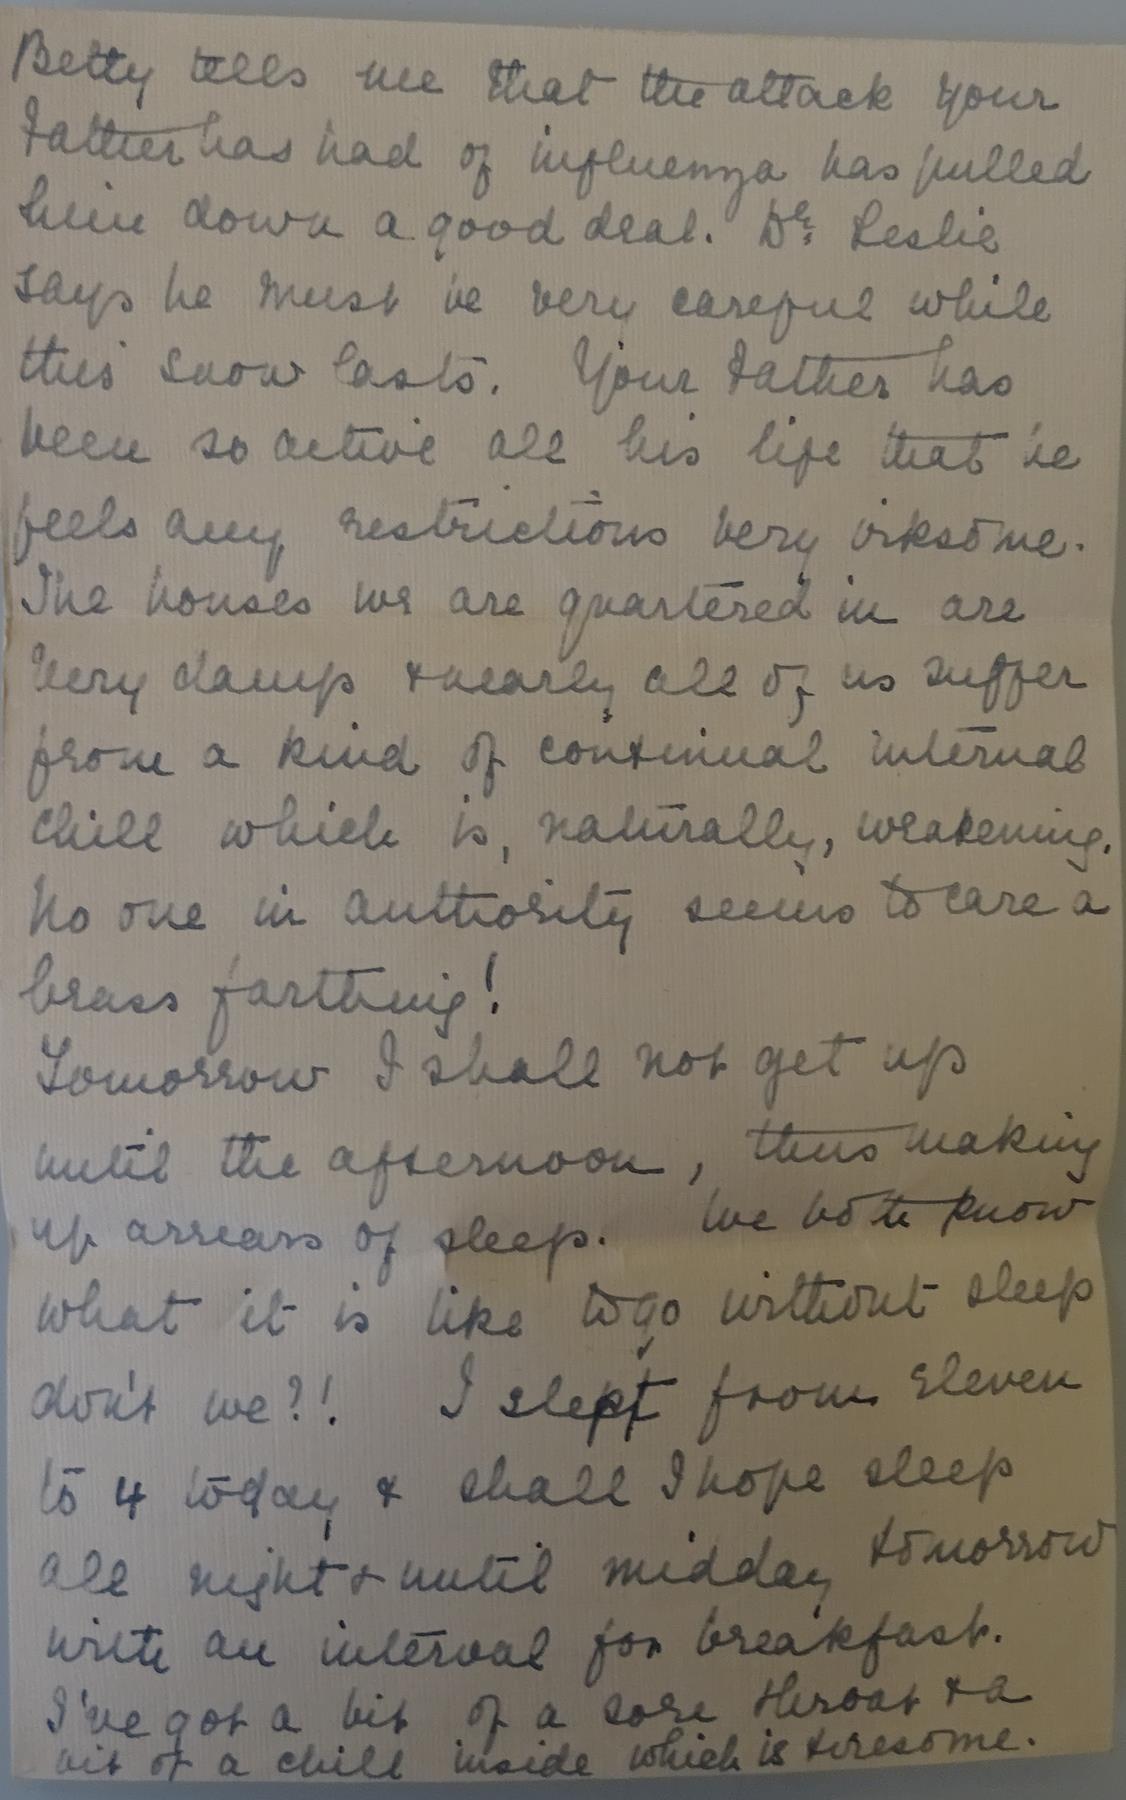 Betty tells me that the attack your
Father has had of influenza has pulled
him down a good deal. Dr. Leslie
says he must be very careful while
this snow lasts. Your Father has
been so active all his life that he
feels any restrictions very irksome.
The houses we are quartered in are
very damp & nearly all of us suffer
from a kind of continual internal
chill which is, naturally, weakening.
No one in authority seems to care a
brass farthing!
Tomorrow I shall not get up
until the afternoon, thus making
up arrears of sleep. We both know
what it is like to go without sleep
don't we?!. I slept from eleven
to 4 today & shall I hope sleep
all night & until midday tomorrow
with an interval for breakfast.
I've got a bit of a sore throat & a
bit of a chill inside which is tiresome.